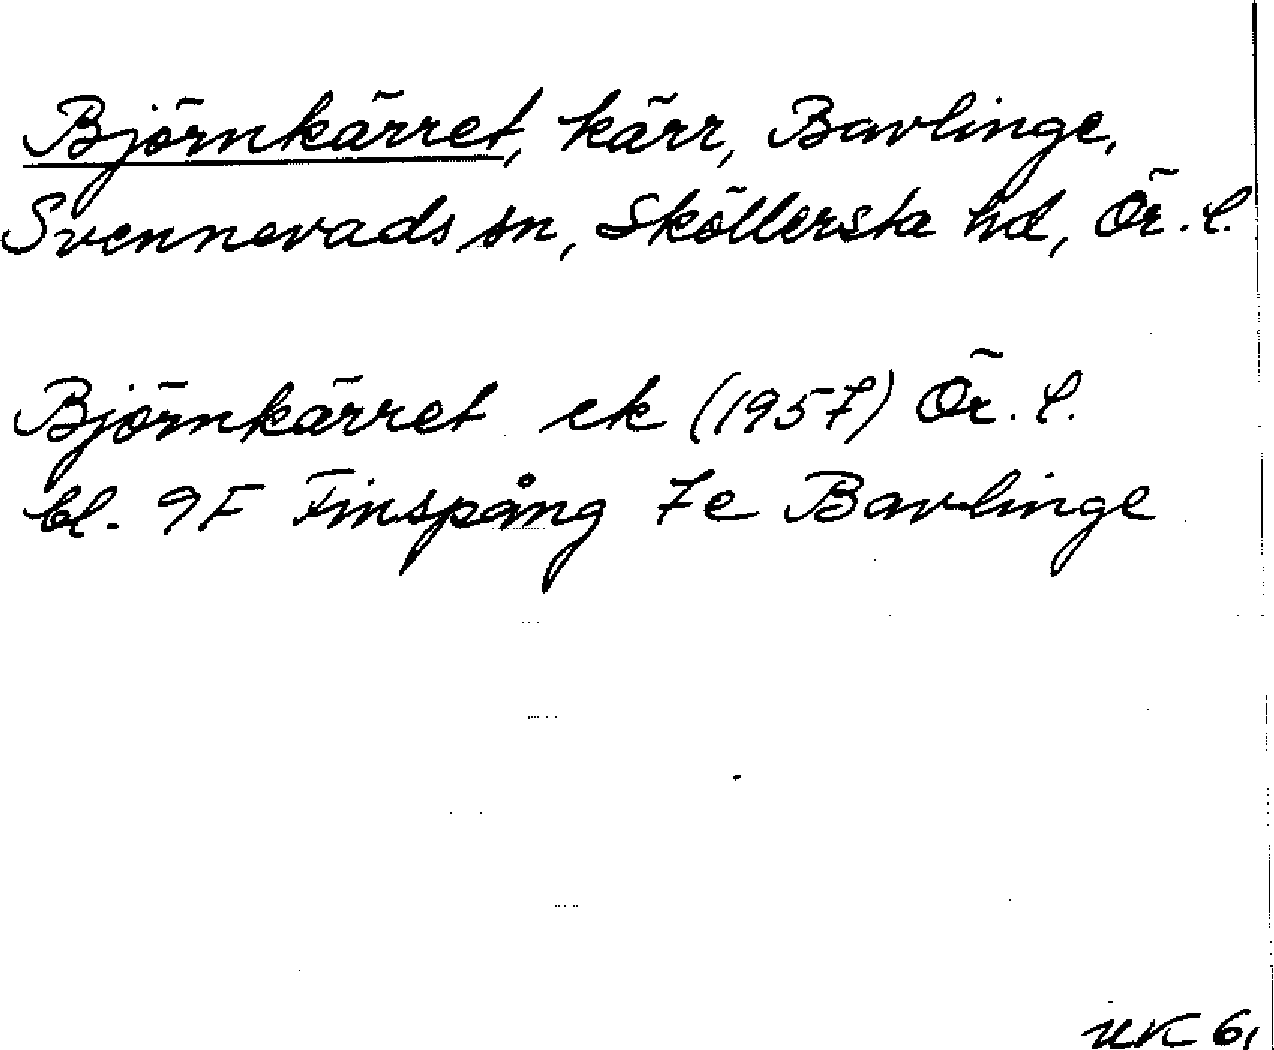 Björnkärret, kärr, Bavlinge,
Svennevads sn, Sköllersta hd, Ör. l.
Björnkärret ek (1957) Ör. l.
bl. 9F Finspång 7e Bavlinge
UK 61